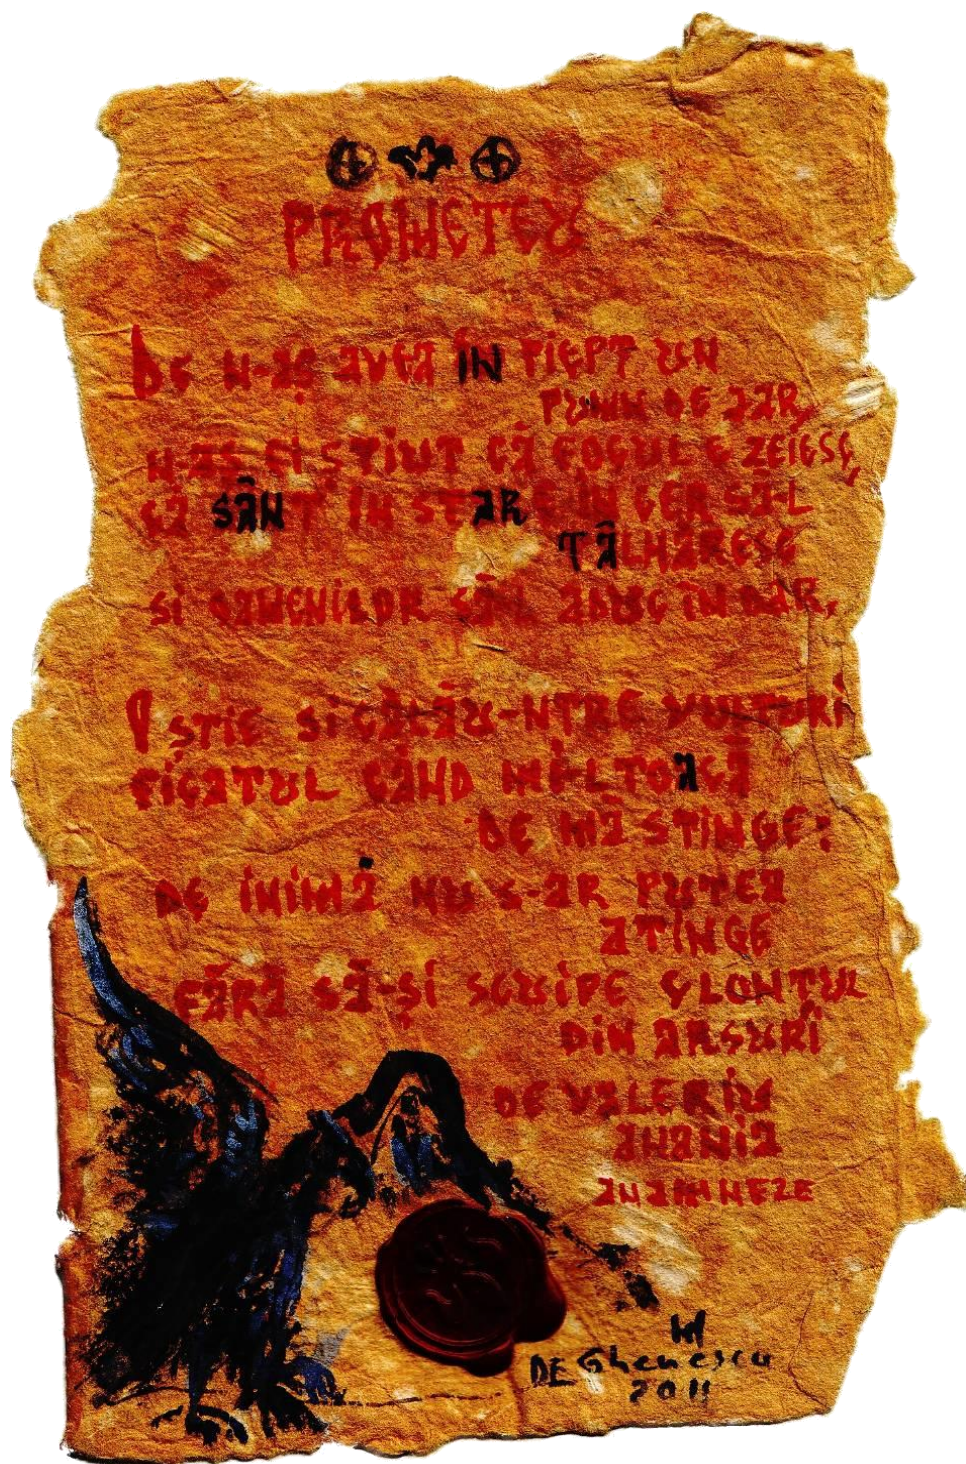 PROMETEU
DE N-AȘ AVEA ÎN PIEPT UN
PUMN DE JAR,
N-AȘ FI ȘTIUT CĂ FOCUL E ZEIESC,
CĂ SÂNT ÎN STARE ÎN CER SĂ-L
TÂLHĂRESC
SI OAMENILOR SĂ-L ADUC ÎN DAR,
O ȘTIE SI CĂLĂU-NTRE VULTURI
FICATUL CÂND MI-L TOACĂ
DE MĂ STINGE:
DE INIMĂ NU S-AR PUTEA
ATINGE
FĂRĂ SĂ-ȘI SCUIPE CLONTUL
DIN ARSURI
DE VALERIU
ANANIA
ANAMNEZE
DE Ghenescu
2011